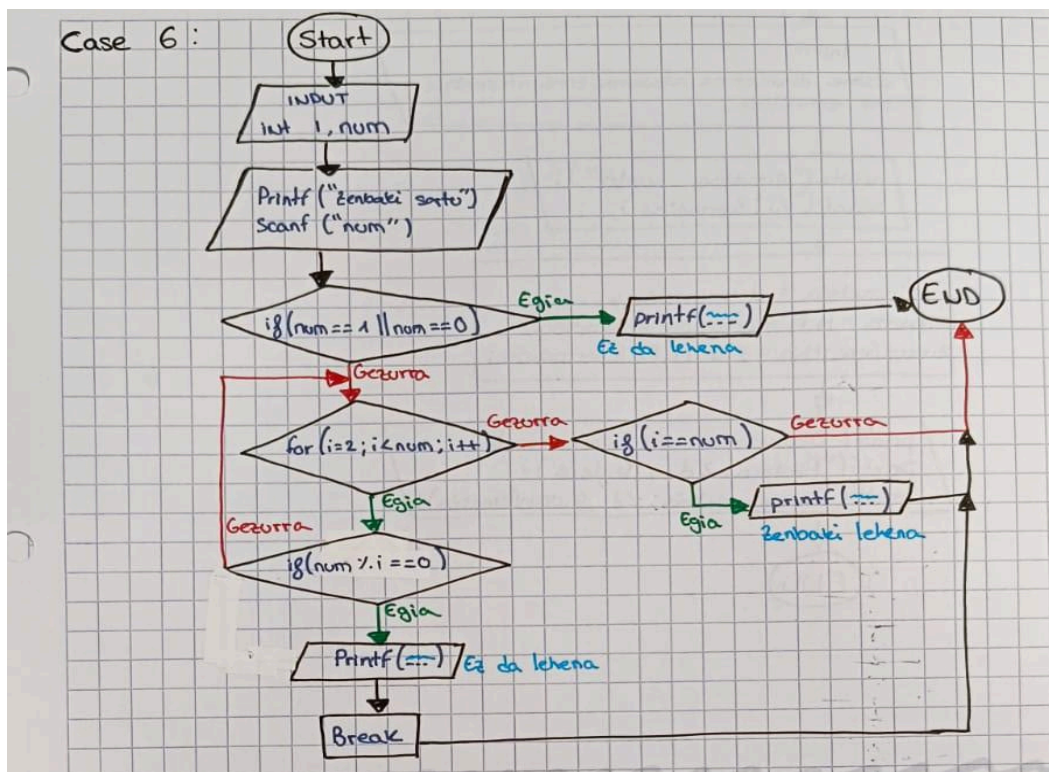 Case 6:
Start
INPUT
int i, num
Printf ("Zenbaki sartu")
Scanf ("num")
if(num==1 || num==0)
Egia
printf(
)
Ez da lehena
END
Gezurra
for(i=2; i<num; i++)
Gezurra
if(i==num)
Gezurra
Egia
printf(
)
Zenbaki lehena
Egia
Gezurra
if(num % i ==0)
Egia
Printf(
)
Ez da lehena
Break